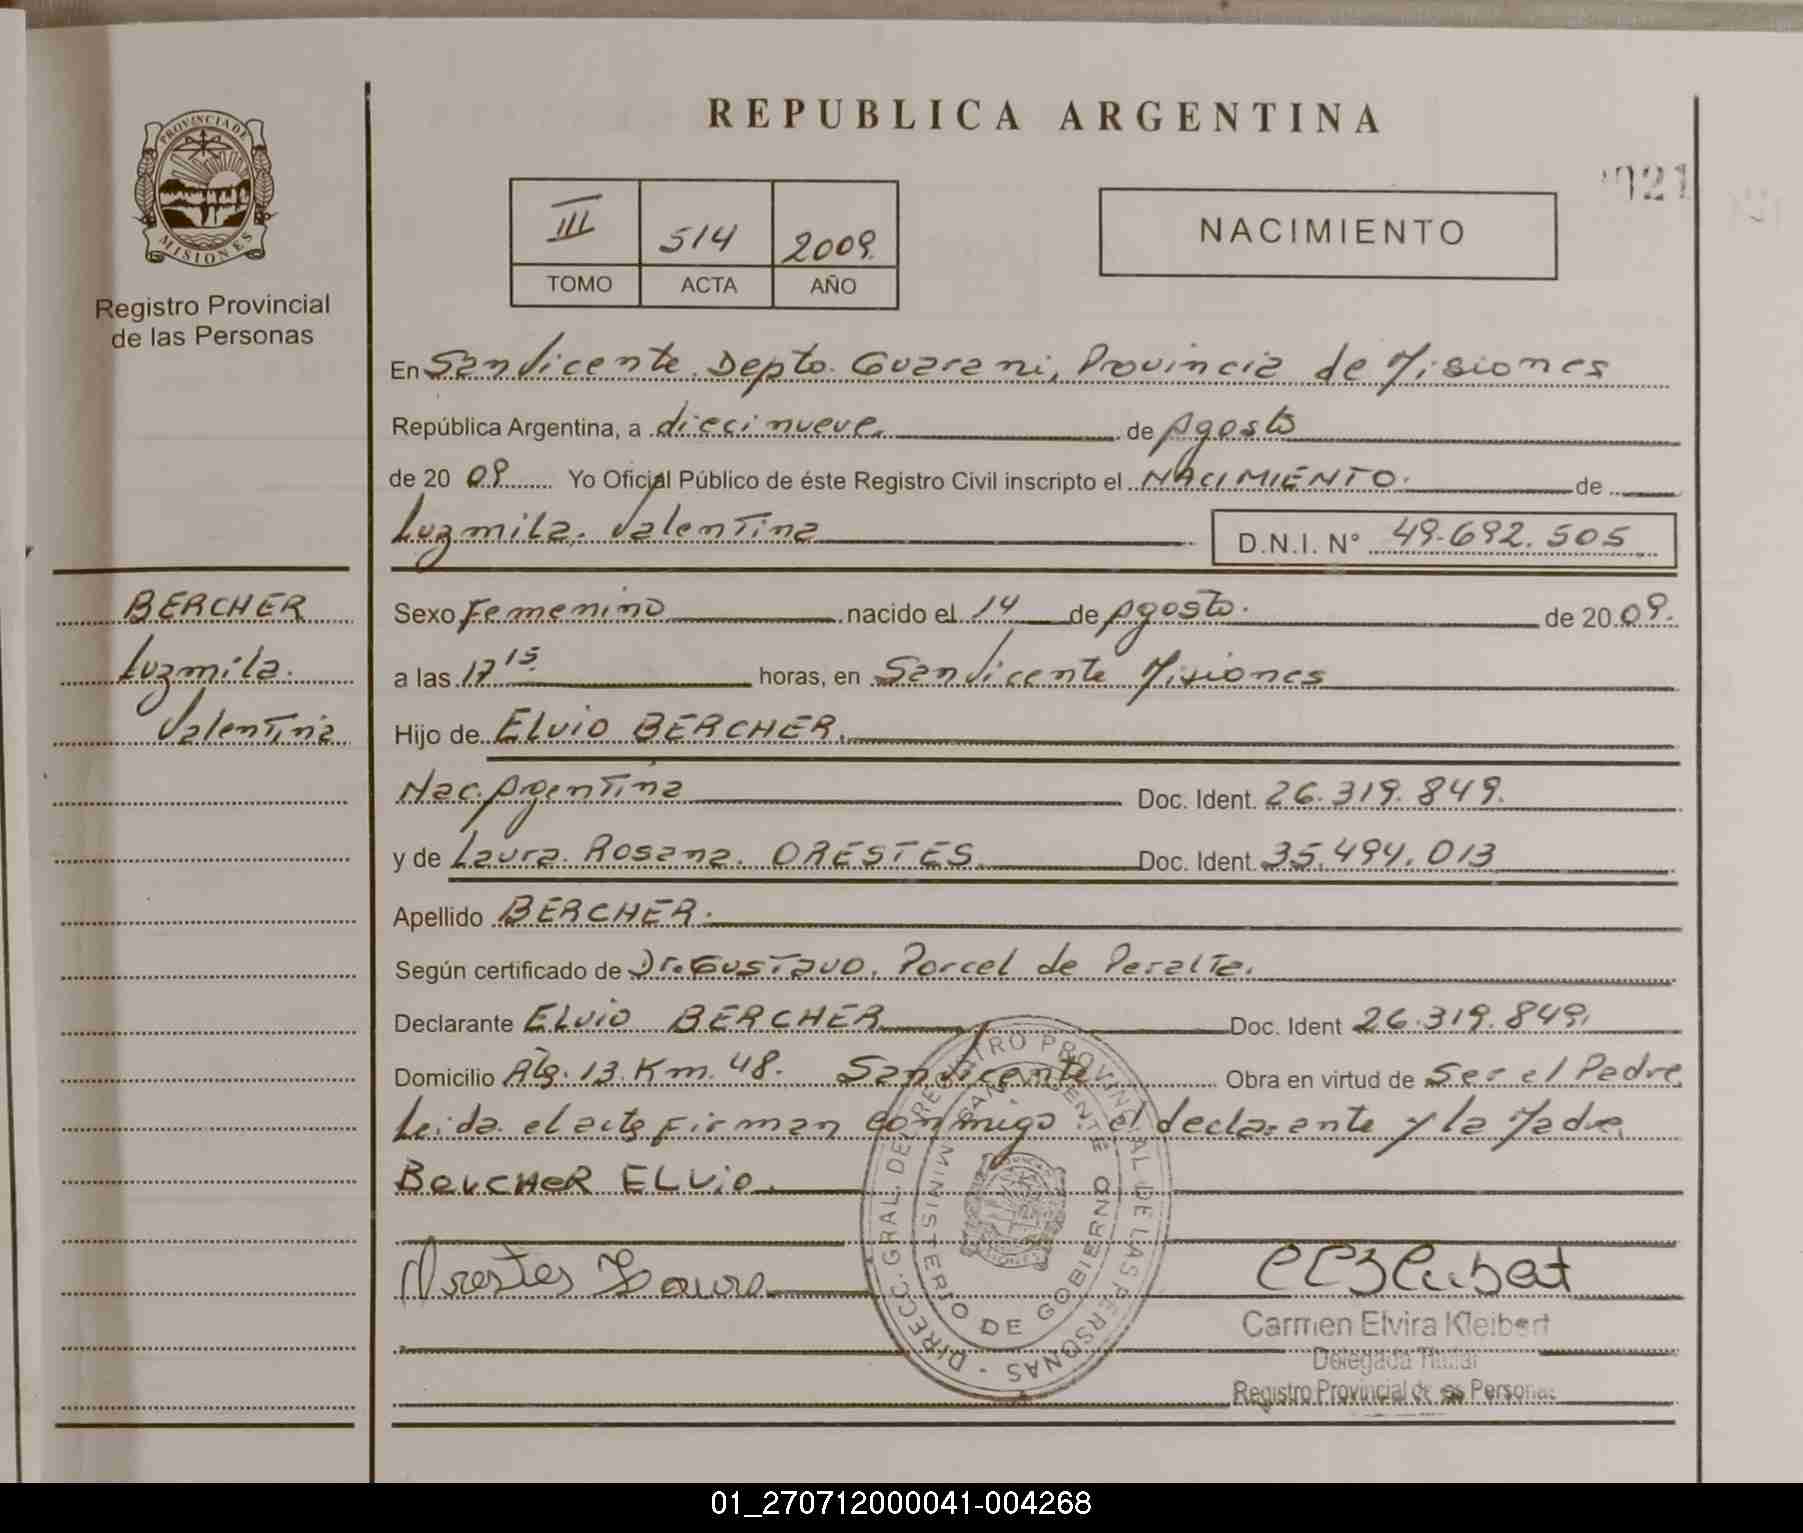 REPUBLICA ARGENTINA
PROVINCIA DE
MISIONES
Registro Provincial
de las Personas
III 514 2009
TOMO ACTA AÑO
NACIMIENTO
021
En San Vicente. Depto. Guarani, Provincia de Misiones
República Argentina, a diecinueve. de Agosto
de 20 09 Yo Oficial Público de éste Registro Civil inscripto el NACIMIENTO. de
Luzmila. Valentina D.N.I. N° 49.692.505
BERCHER
Luzmila.
Valentina
Sexo Femenino nacido el 14 de Agosto. de 20 09.
a las 17 15 horas, en San Vicente Misiones
Hijo de ELVIO BERCHER.
Nac. Argentina Doc. Ident. 26.319.849.
y de Laura. Rosana. ORESTES Doc. Ident. 35.494.013
Apellido BERCHER.
Según certificado de Dr. Gustavo. Porcel de Peralta.
Declarante ELVIO BERCHER Doc. Ident 26.319.849.
Domicilio Alg. 13. Km. 48. San Vicente Obra en virtud de Ser el Padre
Leida el acta firman conmigo el declarante y la Madre.
BerCHeR ELVio.
Orestes Laura
DIRECC. GRAL. DEL REGISTRO PROVINCIAL DE LAS PERSONAS -
SAN VICENTE
MINISTERIO DE GOBIERNO
Carmen Elvira Kleibert
Delegada Titular
Registro Provincial de las Personas
01_270712000041-004268